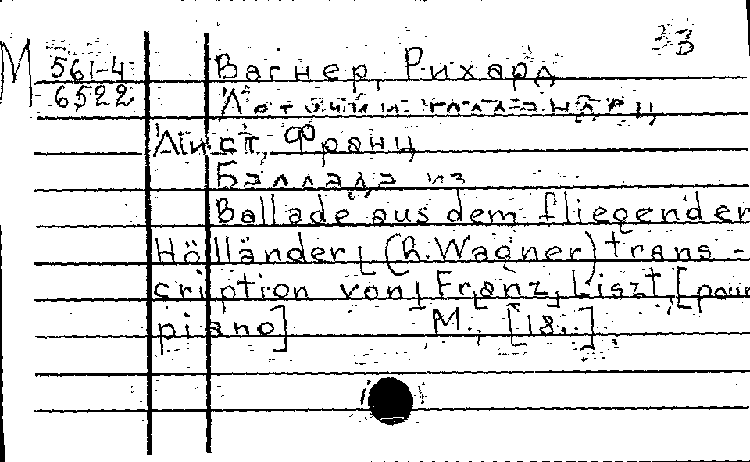 33
М 561-4 Вагнер, Рихард
6522 Летучий голландец,
Лист, Франц
Баллада из
Ballade aus dem fliegenden
Holländer, (R. Wagner) trans-
cription von Franz Liszt, [pour
piano] M., [18..].